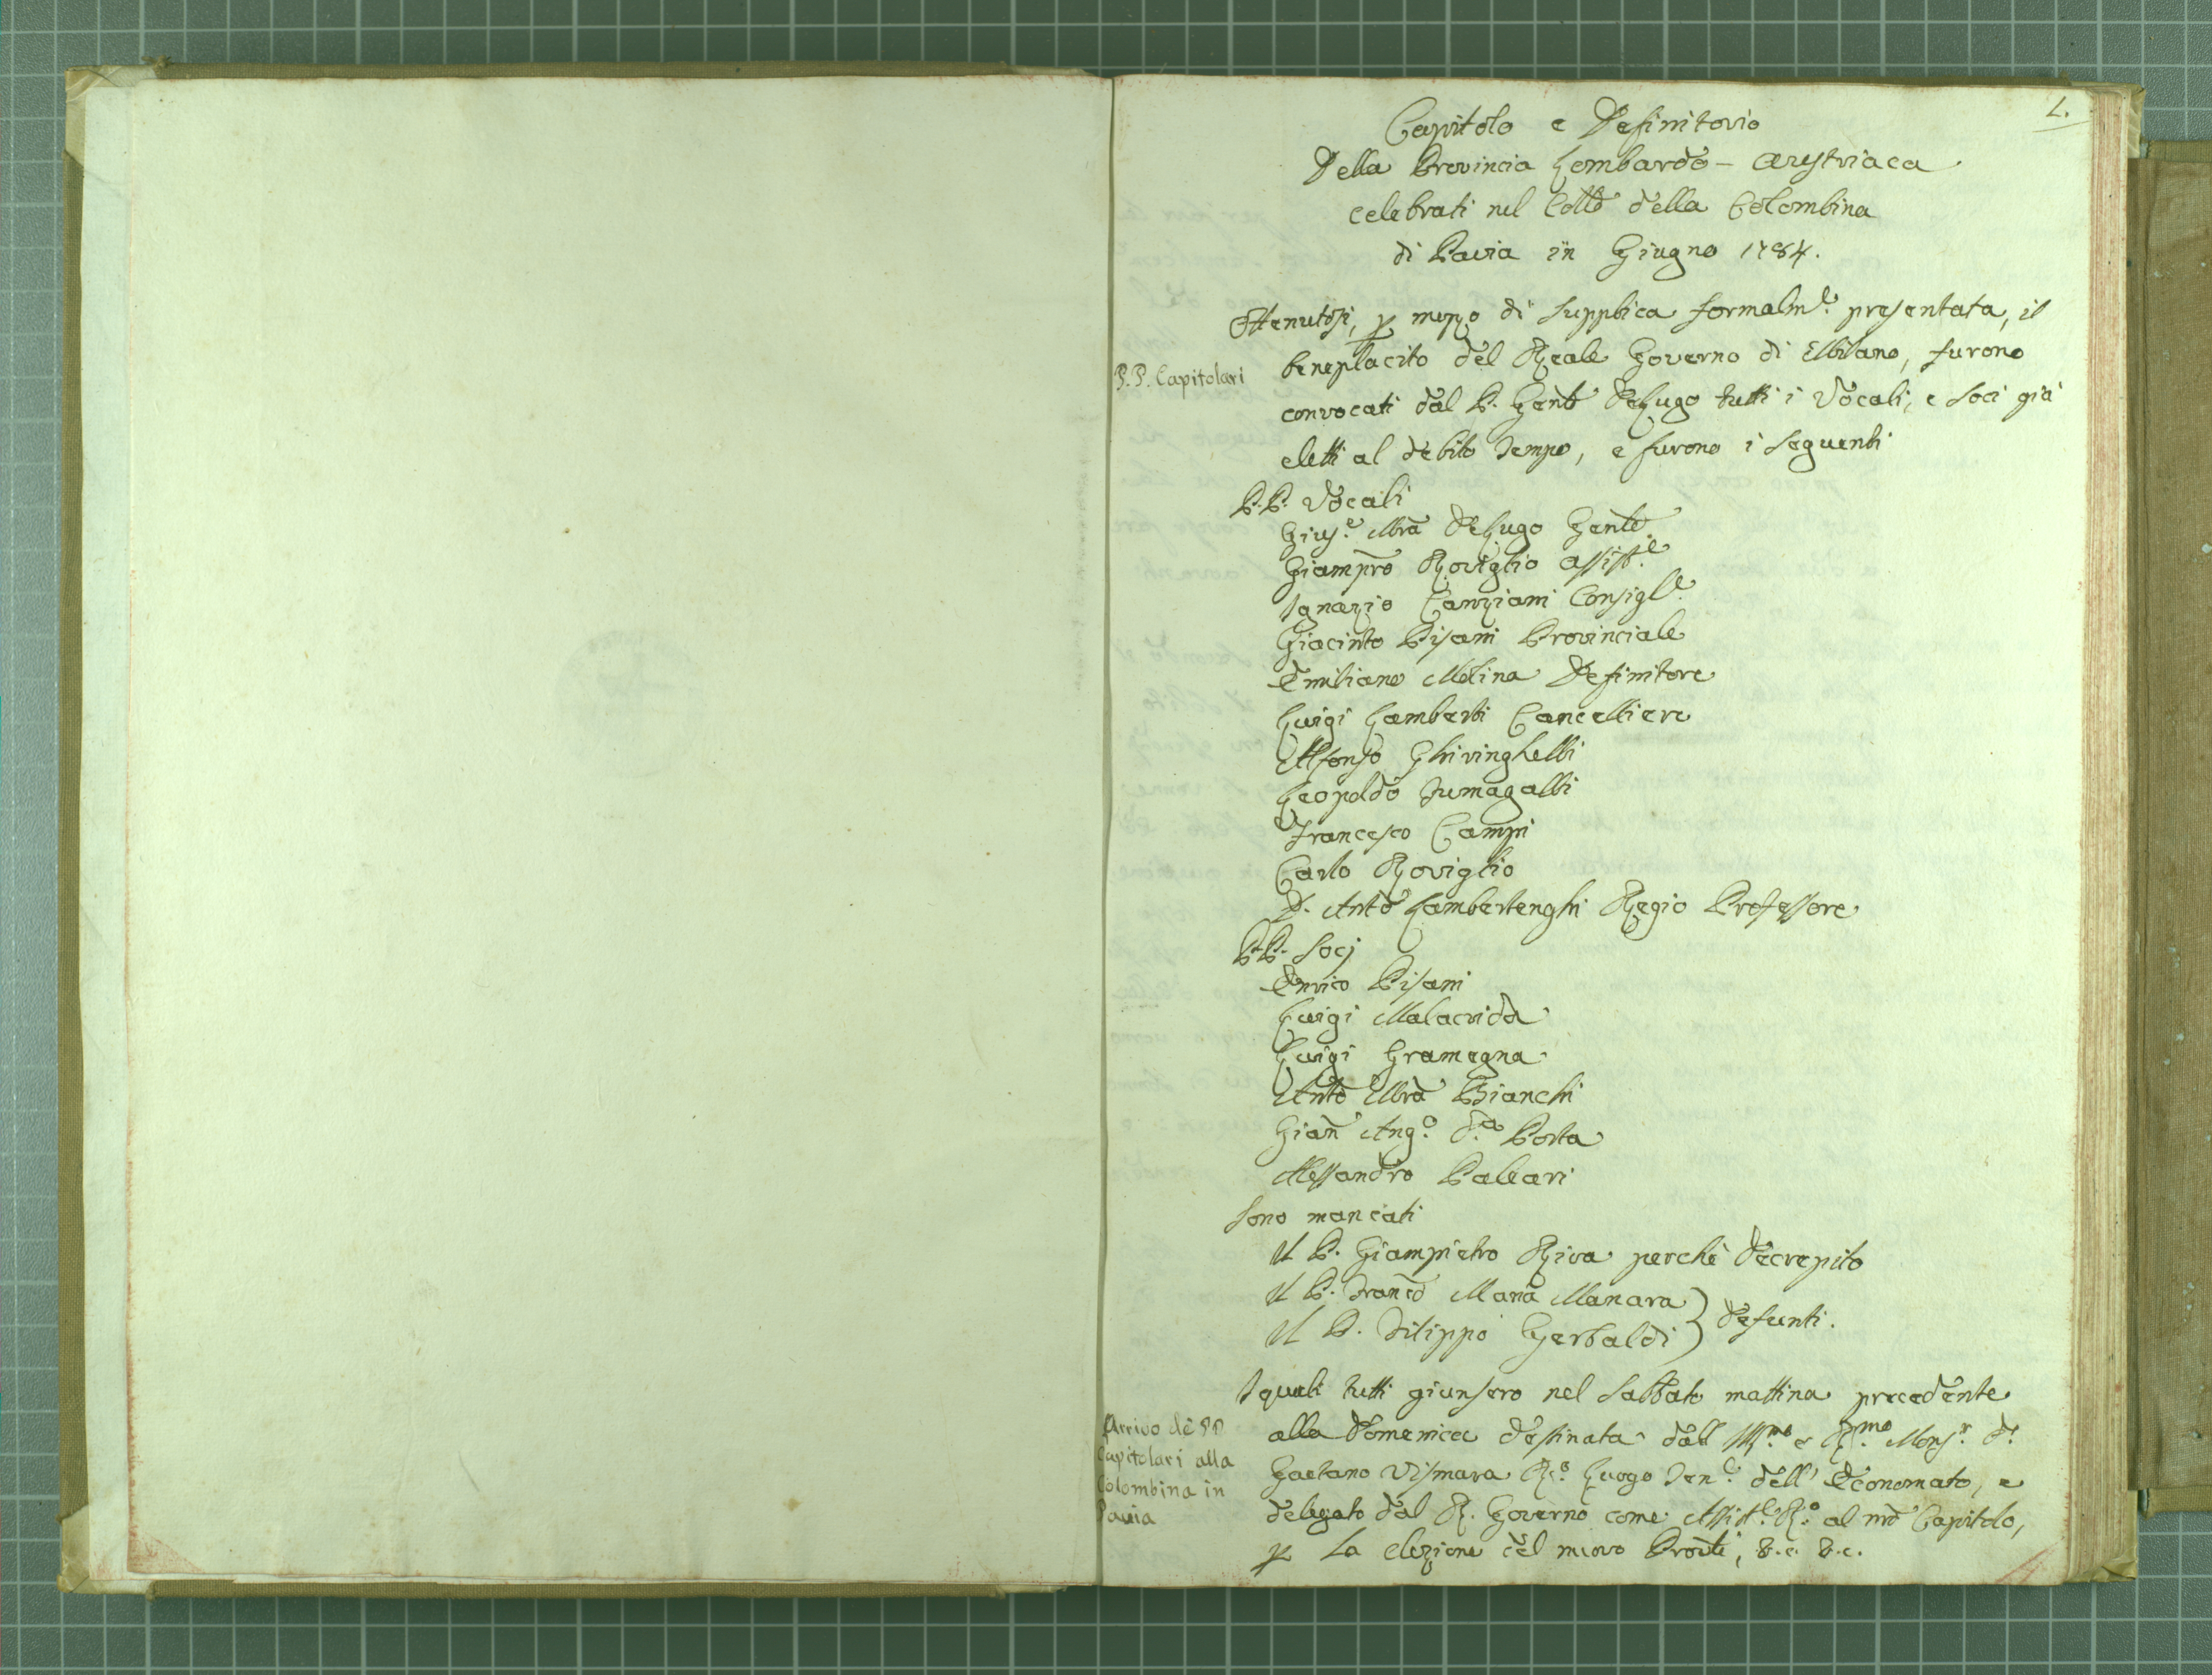 1.
Capitolo e Definitorio
Della Provincia Lombardo - Austriaca
celebrati nel Collo della Colombina
di Pavia in Giugno 1784.
Ottenutosi, p mezzo di supplica formalme. presentata, il
beneplacito del Reale Governo di Milano, furono
P.P. Capitolari
convocati dal P. Genle DeLugo tutti i Vocali, e Soci già
eletti al debito tempo, e furono i seguenti
P.P. Vocali
Giuse. Mra DeLugo Genle
Giampro Roviglio Assiste.
Ignazio Canziani Consigle.
Giacinto Pisani Provinciale
Emiliano Molina Definitore
Luigi Lamberti Cancelliere
Alfonso Ghiringhelli
Leopoldo Fumagalli
Francesco Campi
Carlo Roviglio
D. Anto Lambertenghi Regio Professore
P.P. Socj
Enrico Pisani
Luigi Malacrida
Luigi Gramegna
Anto Mra Bianchi
Gian Ango. da. Porta
Alessandro Paleari
Sono mancati
Il P. Giampietro Riva perchè decrepito
Il P. Franco Maria Manara
Il P. Filippo Gerbaldi } defunti.
I quali tutti giunsero nel Sabbato mattina precedente
Arrivo de PP
Capitolari alla
Colombina in
Pavia
alla Domenica destinata dall' Illmo. e Rmo. Monsr. D.
Gaetano Vismara Ro. Luogo Tene. dell' Economato, e
delegato dal R. Governo come Assiste. Ro. al nro Capitolo,
p la elezione del nuovo Prole, &.c. &.c.